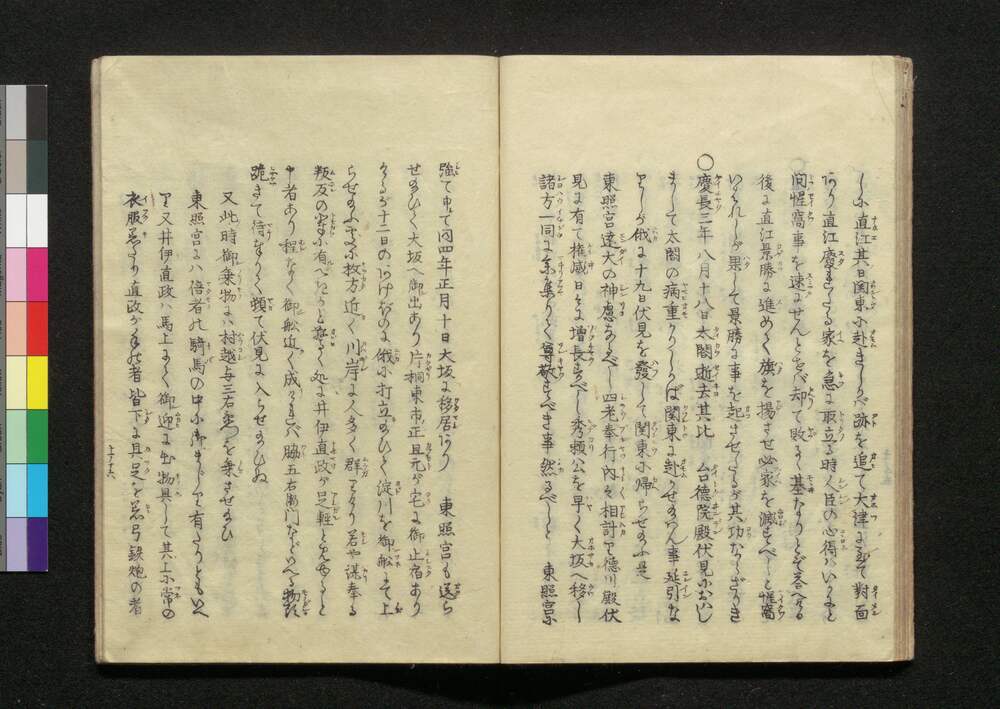 しに直江其日関東に赴きしかバ跡を追て大津に至て對面
あり直江慶たえたる家を急に取立る時人臣の心得ハいかにと
問惺窩事を速にせんとせバ却て敗るゝ基なりとぞ答へける
後に直江景勝に進めて旗を揚させ必家を滅すべしと惺窩
いはれしが果して景勝に事を起させたるが其功なかりき
○慶長三年八月十八日太閤逝去其比 台德院殿伏見におはし
まして太閤の病重かりしかば関東に赴かせ給ハん事延引な
りしが俄に十九日伏見を發して関東に帰らせ給ふ是
東照宮遠大の神慮なるべし四老奉行内々相計りて德川殿伏
見に有て権威日々に増長すべし秀頼公を早く大坂へ移し
諸方一同に馳集りて尊敬すべき事然るべしと 東照宮に
強て申て同四年正月十日大坂に移居あり 東照宮も送ら
せ給ひて大坂へ御出あり片桐東市正且元が宅に御止宿あり
けるが十二日のあけがたに俄に打立給ひて淀川を御舩にて上
らせ給ふに枚方近く川岸に人多く群りたり若や謀奉る
叛反の輩に有べきかと

中者あり程なく御舩近く成けれバ脇五右衛門などいへる物頭
跪きて待奉りて頓て伏見に入らせ給ひぬ
又此時御乗物にハ村越与三右衛門を乗させ給ひ
東照宮にハ倍者の騎馬の中に御まじりて有しともいへ
り又井伊直政ハ馬上にて御迎に出物具して其上に常の
衣服着たり直政が手の者皆下に具足を着弓鉄炮の者